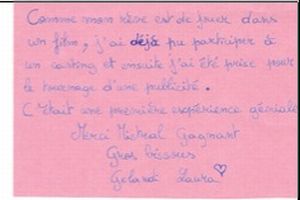 Comme mon rêve est de jouer dans
un film, j'ai déjà pu participer à
un casting et ensuite j'ai été prise pour
le tournage d'une publicité.
C'était une première expérience géniale
Merci Mistral Gagnant
Gros bisous
Laura